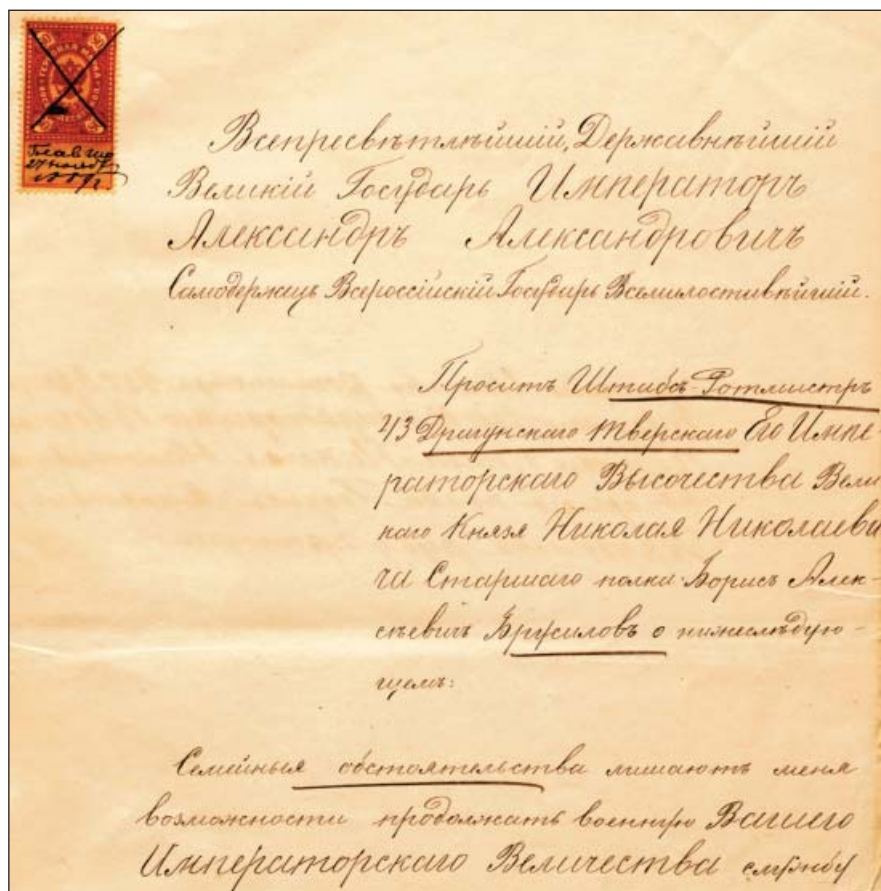 27 нояб
Всепресвѣтлѣйшій, Державнѣйшій
Великій Государь Императоръ
Александръ Александровичъ
Самодержецъ Всероссійскій Государь Всемилостивѣйшій.
Проситъ Штабсъ-Ротмистръ
43 Драгунскаго Тверскаго Его Импе-
раторскаго Высочества Вели
каго Князя Николая Николаеви
ча Старшаго полка Борисъ Алек-
сѣевичъ Брусиловъ о нижеслѣдую-
щемъ:
Семейныя обстоятельства лишаютъ меня
возможности продолжать военную Вашего
Императорскаго Величества службу